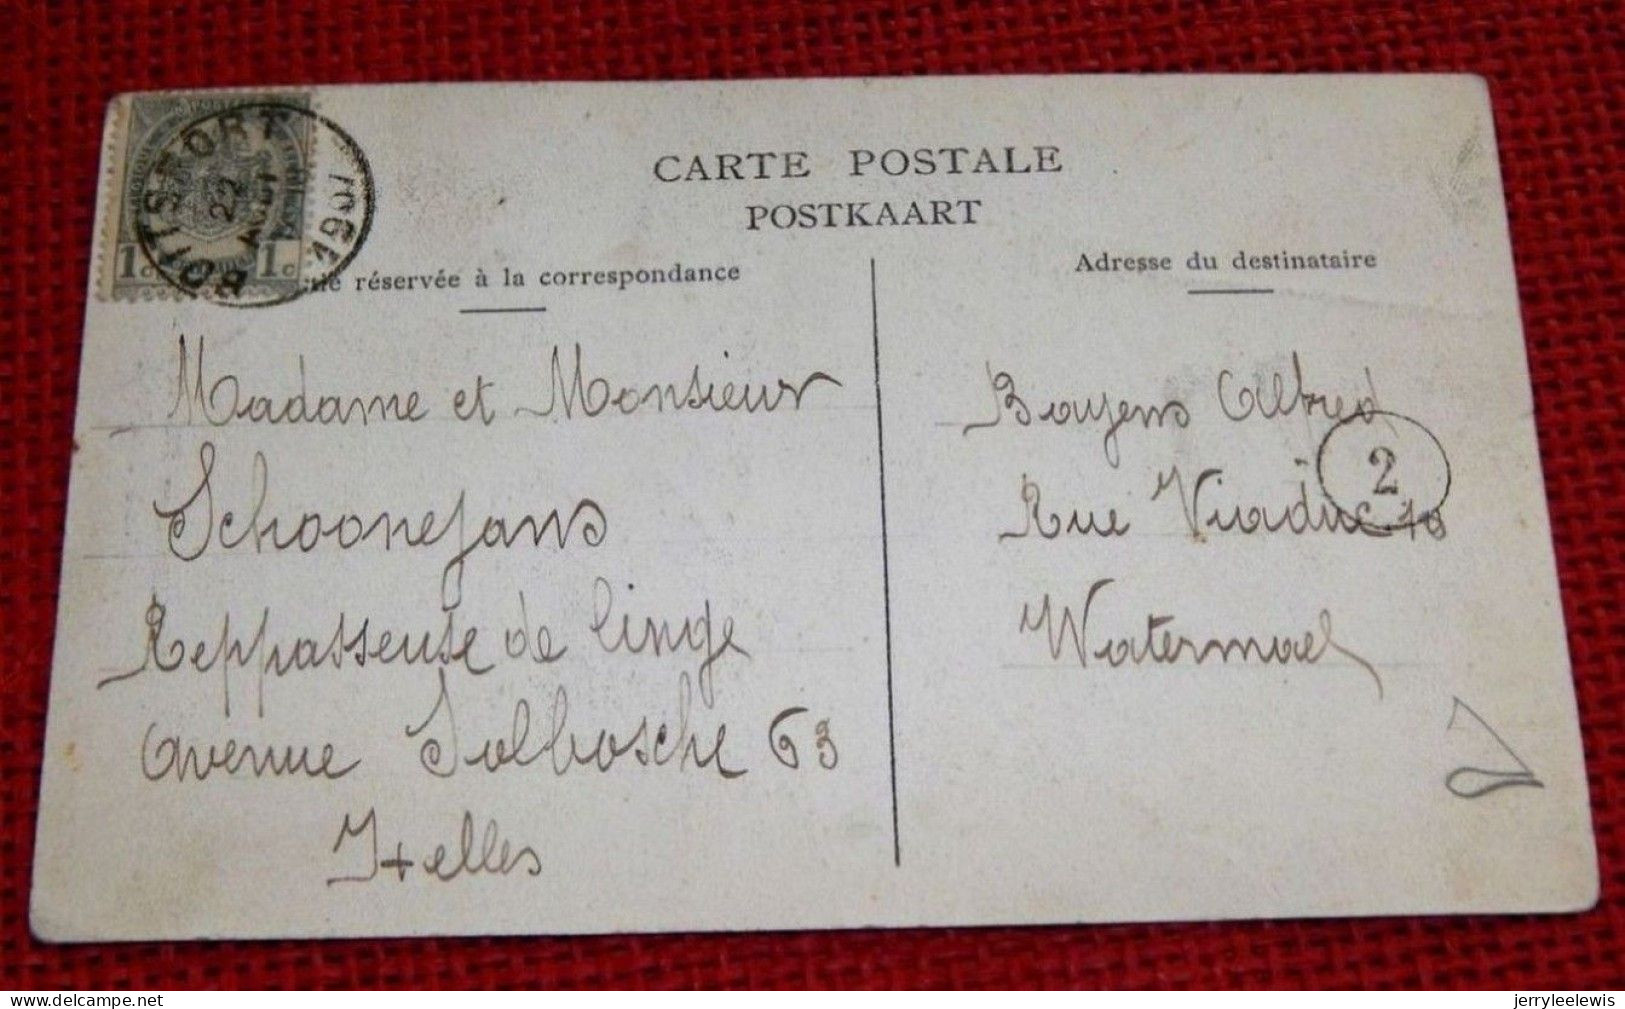 CARTE POSTALE
POSTKAART
BOITSFORT
22
AOUT
1907
1c 1c
réservée à la correspondance
Adresse du destinataire
Madame et Monsieur
Schoonejans
Reppasseuse de linge
avenue Solbosche 63
Ixelles
Boyens Alfred
2
Rue Viaduc 10
Watermael
delcampe.net
jerryleelewis